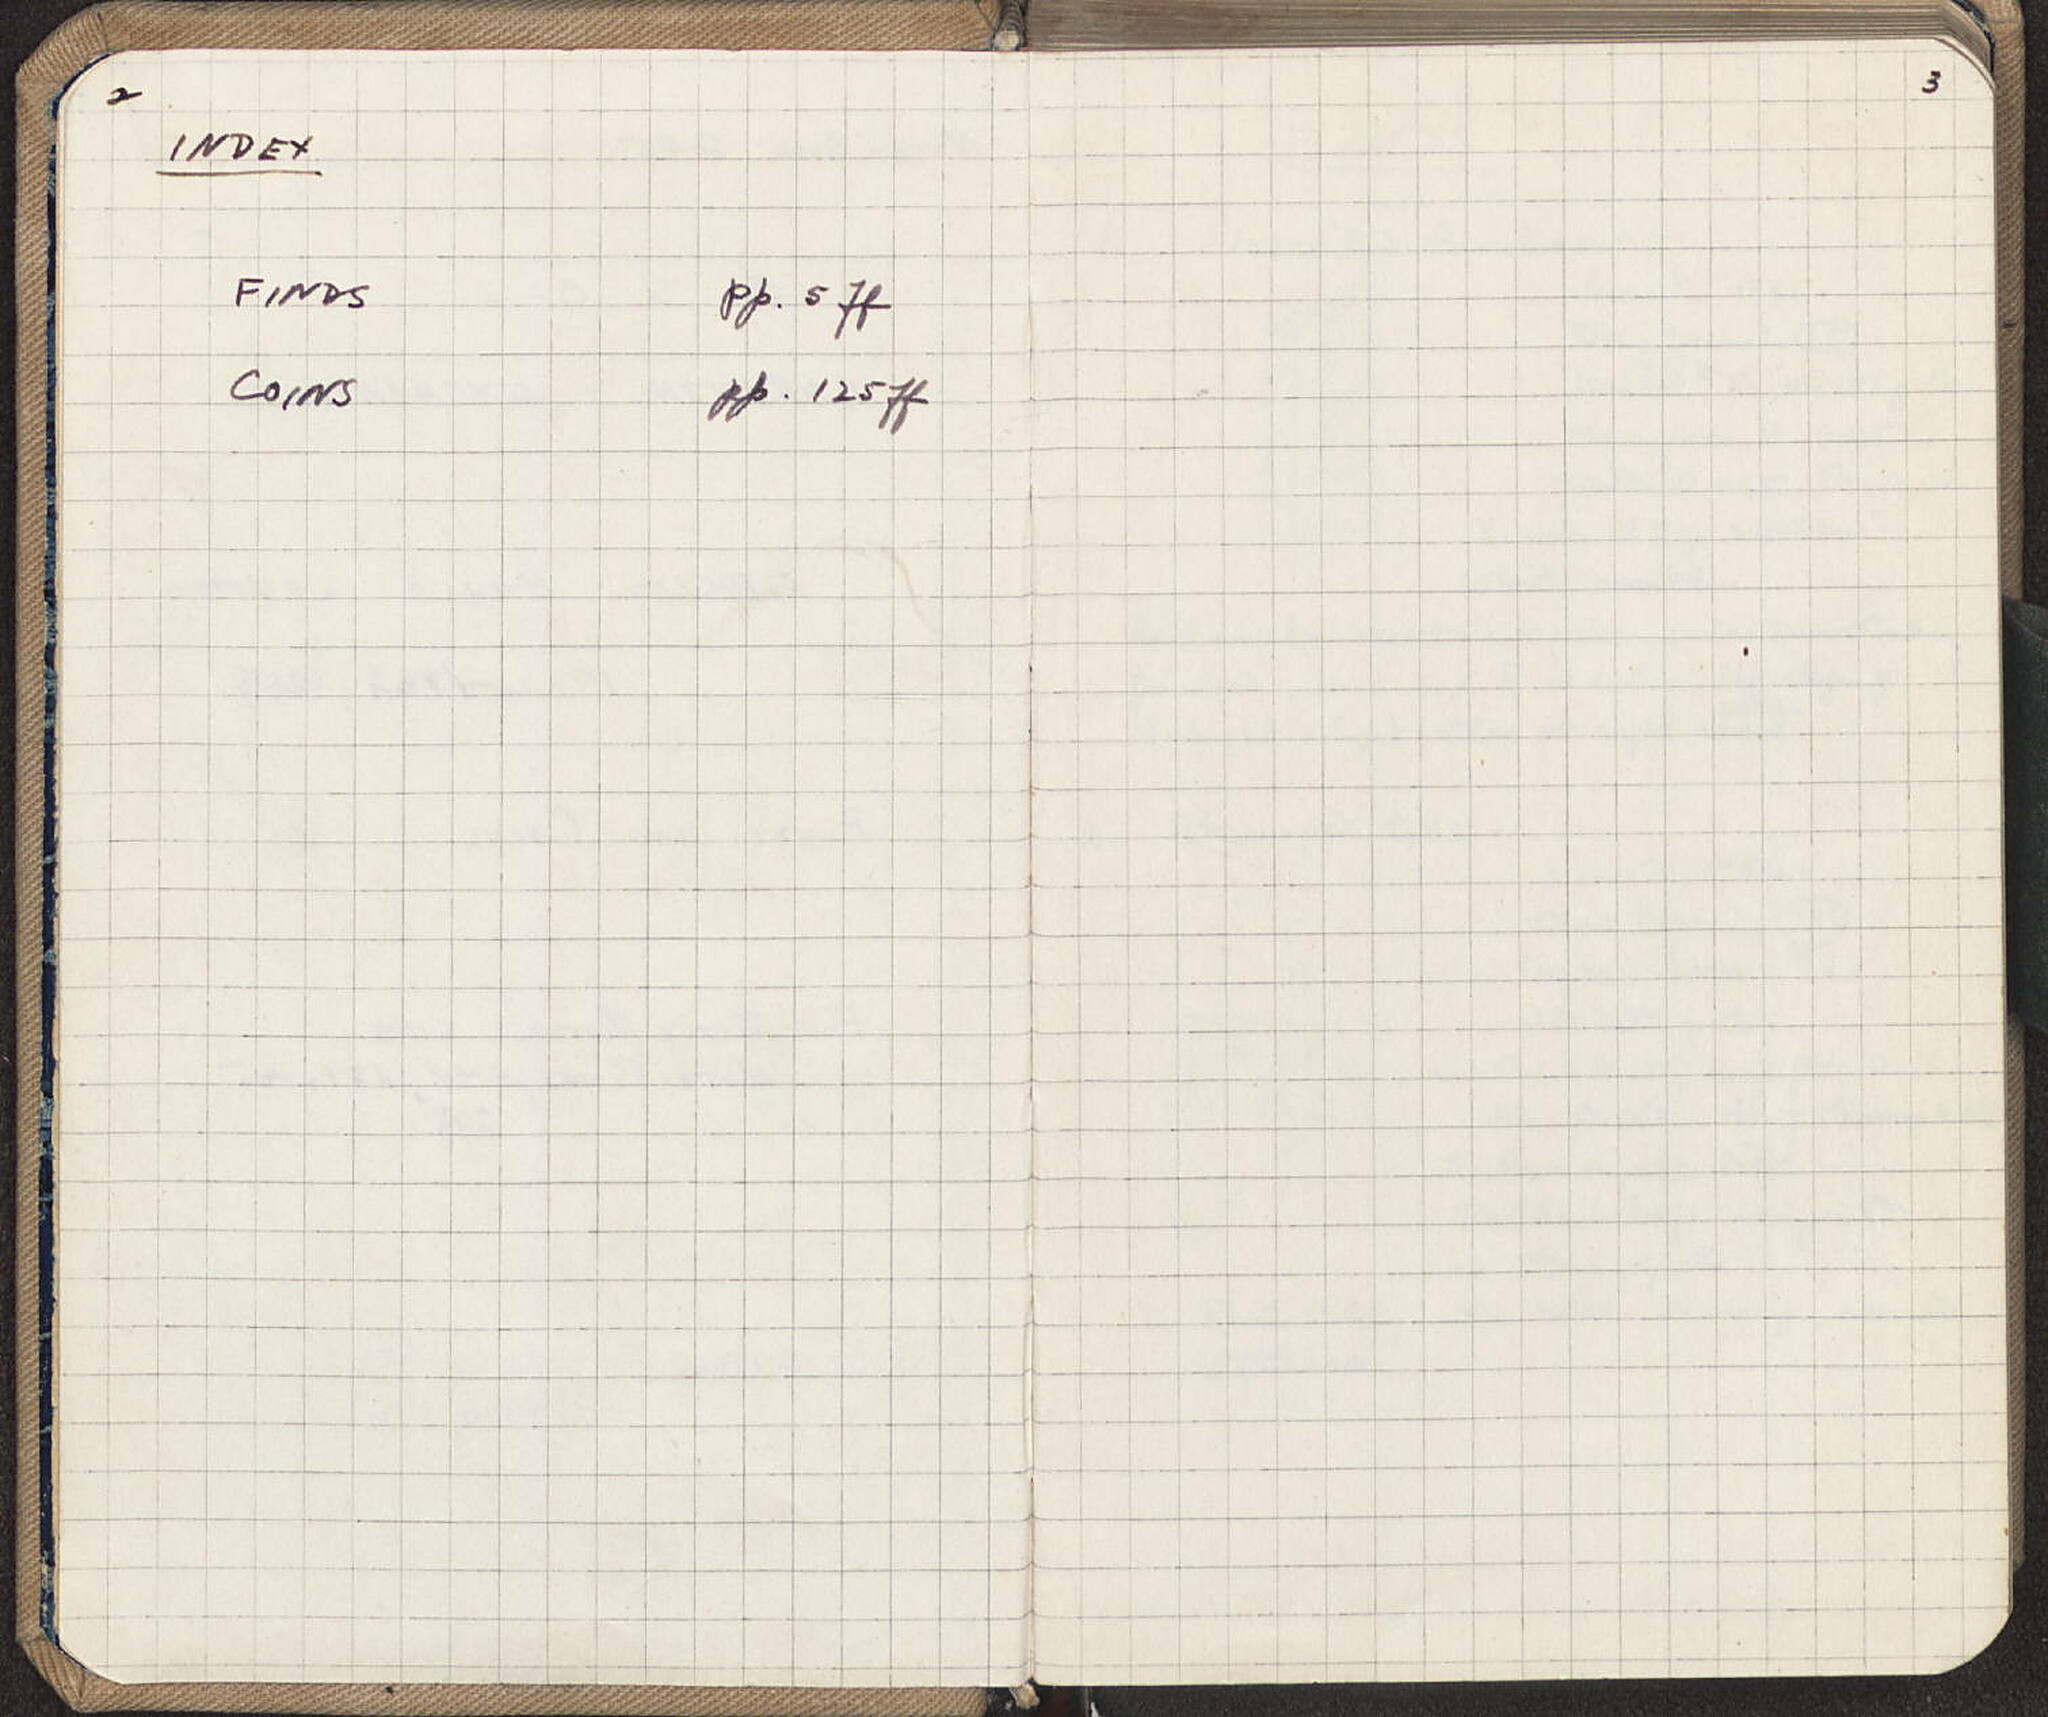 2
INDEX
FINDS pp. 5 ff
COINS pp. 125 ff
3